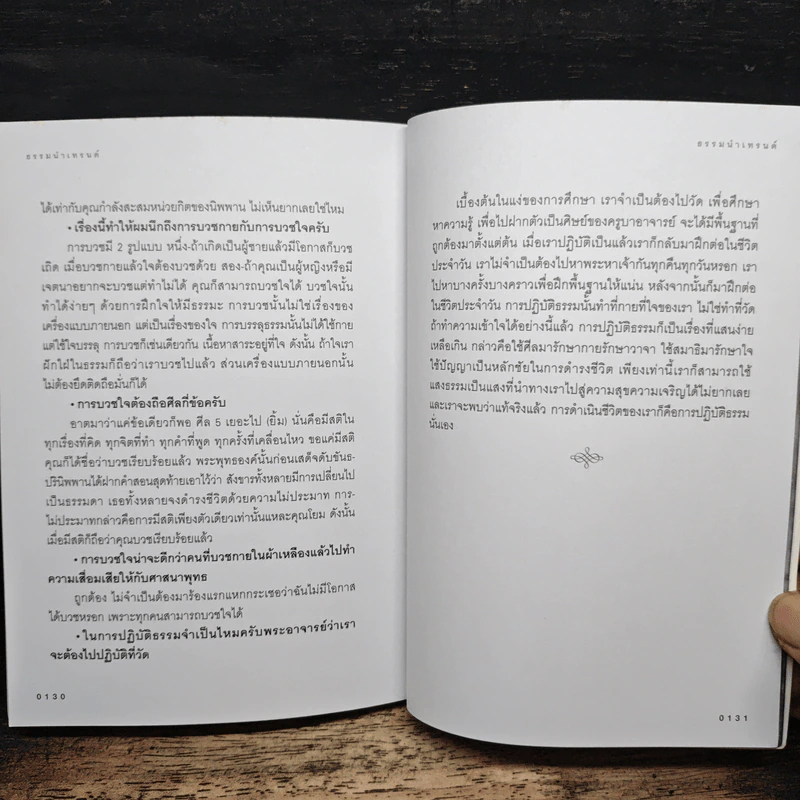 ธรรมนำเทรนด์
ได้เท่ากับคุณกำลังสะสมหน่วยกิตของนิพพาน ไม่เห็นยากเลยใช่ไหม
• เรื่องนี้ทำให้ผมนึกถึงการบวชกายกับการบวชใจครับ
การบวชมี 2 รูปแบบ หนึ่ง-ถ้าเกิดเป็นผู้ชายแล้วมีโอกาสก็บวช
เถิด เมื่อบวชกายแล้วใจต้องบวชด้วย สอง-ถ้าคุณเป็นผู้หญิงหรือมี
เจตนาอยากจะบวชแต่ทำไม่ได้ คุณก็สามารถบวชใจได้ บวชใจนั้น
ทำได้ง่ายๆ ด้วยการฝึกใจให้มีธรรมะ การบวชนั้นไม่ใช่เรื่องของ
เครื่องแบบภายนอก แต่เป็นเรื่องของใจ การบรรลุธรรมนั้นไม่ได้ใช้กาย
แต่ใช้ใจบรรลุ การบวชก็เช่นเดียวกัน เนื้อหาสาระอยู่ที่ใจ ดังนั้น ถ้าใจเรา
ฝักใฝ่ในธรรมก็ถือว่าเราบวชไปแล้ว ส่วนเครื่องแบบภายนอกนั้น
ไม่ต้องยึดติดถือมั่นก็ได้
• การบวชใจต้องถือศีลกี่ข้อครับ
อาตมาว่าแค่ข้อเดียวก็พอ ศีล 5 เยอะไป (ยิ้ม) นั่นคือมีสติใน
ทุกเรื่องที่คิด ทุกจิตที่ทำ ทุกคำที่พูด ทุกครั้งที่เคลื่อนไหว ขอแค่มีสติ
คุณก็ได้ชื่อว่าบวชเรียบร้อยแล้ว พระพุทธองค์นั้นก่อนเสด็จดับขันธ-
ปรินิพพานได้ฝากคำสอนสุดท้ายเอาไว้ว่า สังขารทั้งหลายมีการเปลี่ยนไป
เป็นธรรมดา เธอทั้งหลายจงดำรงชีวิตด้วยความไม่ประมาท การ-
ไม่ประมาทกล่าวคือการมีสติเพียงตัวเดียวเท่านั้นแหละคุณโยม ดังนั้น
เมื่อมีสติก็ถือว่าคุณบวชเรียบร้อยแล้ว
• การบวชใจน่าจะดีกว่าคนที่บวชกายในผ้าเหลืองแล้วไปทำ
ความเสื่อมเสียให้กับศาสนาพุทธ
ถูกต้อง ไม่จำเป็นต้องมาร้องแรกแหกกระเชอว่าฉันไม่มีโอกาส
ได้บวชหรอก เพราะทุกคนสามารถบวชใจได้
• ในการปฏิบัติธรรมจำเป็นไหมครับพระอาจารย์ว่าเรา
จะต้องไปปฏิบัติที่วัด
0130
ธรรมนำเทรนด์
เบื้องต้นในแง่ของการศึกษา เราจำเป็นต้องไปวัด เพื่อศึกษา
หาความรู้ เพื่อไปฝากตัวเป็นศิษย์ของครูบาอาจารย์ จะได้มีพื้นฐานที่
ถูกต้องมาตั้งแต่ต้น เมื่อเราปฏิบัติเป็นแล้วเราก็กลับมาฝึกต่อในชีวิต
ประจำวัน เราไม่จำเป็นต้องไปหาพระหาเจ้ากันทุกคืนทุกวันหรอก เรา
ไปหาบางครั้งบางคราวเพื่อฝึกพื้นฐานให้แน่น หลังจากนั้นก็มาฝึกต่อ
ในชีวิตประจำวัน การปฏิบัติธรรมนั้นทำที่กายที่ใจของเรา ไม่ใช่ทำที่วัด
ถ้าทำความเข้าใจได้อย่างนี้แล้ว การปฏิบัติธรรมก็เป็นเรื่องที่แสนง่าย
เหลือเกิน กล่าวคือใช้ศีลมารักษากายรักษาวาจา ใช้สมาธิมารักษาใจ
ใช้ปัญญาเป็นหลักชัยในการดำรงชีวิต เพียงเท่านี้เราก็สามารถใช้
แสงธรรมเป็นแสงที่นำทางเราไปสู่ความสุขความเจริญได้ไม่ยากเลย
และเราจะพบว่าแท้จริงแล้ว การดำเนินชีวิตของเราก็คือการปฏิบัติธรรม
นั่นเอง
0131